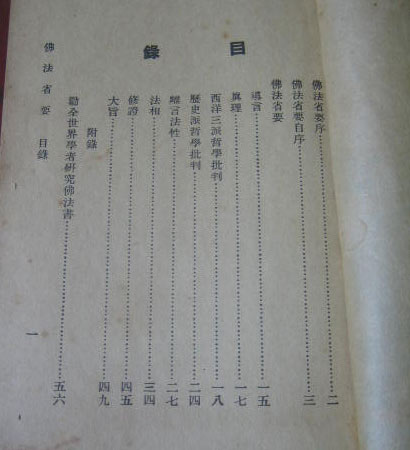 目錄
佛法省要序……二
佛法省要自序……三
佛法省要
導言……一五
真理……一七
西洋三派哲學批判……一八
歷史派哲學批判……二四
離言法性……二七
法相……三四
修證……四五
大旨……四九
附錄
勸全世界學者研究佛法書……五六
佛法省要 目錄 一